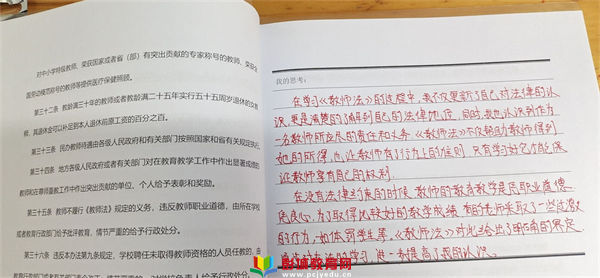 对中小学特级教师、荣获国家或者省（部）有突出贡献的专家称号的教师、荣获全
国劳动模范称号的教师等提供医疗保健照顾。
第三十二条 教龄满三十年的教师或者教龄满二十五年实行五十五周岁退休的女教
师，其退休金可以补足到本人退休前原工资的百分之百。
第三十三条 民办教师待遇由各级人民政府和有关部门按照国家和省有关规定执行
第三十四条 地方各级人民政府和有关部门对在教育教学工作中作出显著成绩的
教师和在尊师重教工作中作出突出贡献的单位、个人给予表彰和奖励。
第三十五条 教师不履行《教师法》规定的义务，违反教师职业道德，由所在学
或者教育行政部门给予批评教育，情节严重的给予行政处分。
第三十六条 违反本办法第九条规定，学校聘任未取得教师资格的人员任教的，由
我的思考：
在学习《教师法》的过程中，我不仅更新了自己对法律的认
识，更是清楚的了解到自己的法律地位，同时，我也认识到作为
一名教师所应尽的责任和义务。《教师法》不仅帮助教师得到
她的所得，也让教师有了行为上的准则，只有学习好它才能保
证教师享有自己的权利。
在没有法律约束的时候，教师的教育教学是凭职业道德，
凭良心，为了取得比较好的教学成绩，有的老师采取了一些过激
的行为，如体罚学生等，《教师法》对此给出了明确的界定，
的学习，进一步提高了我的认识。
彭城教育网
www.pcjyedu.cn